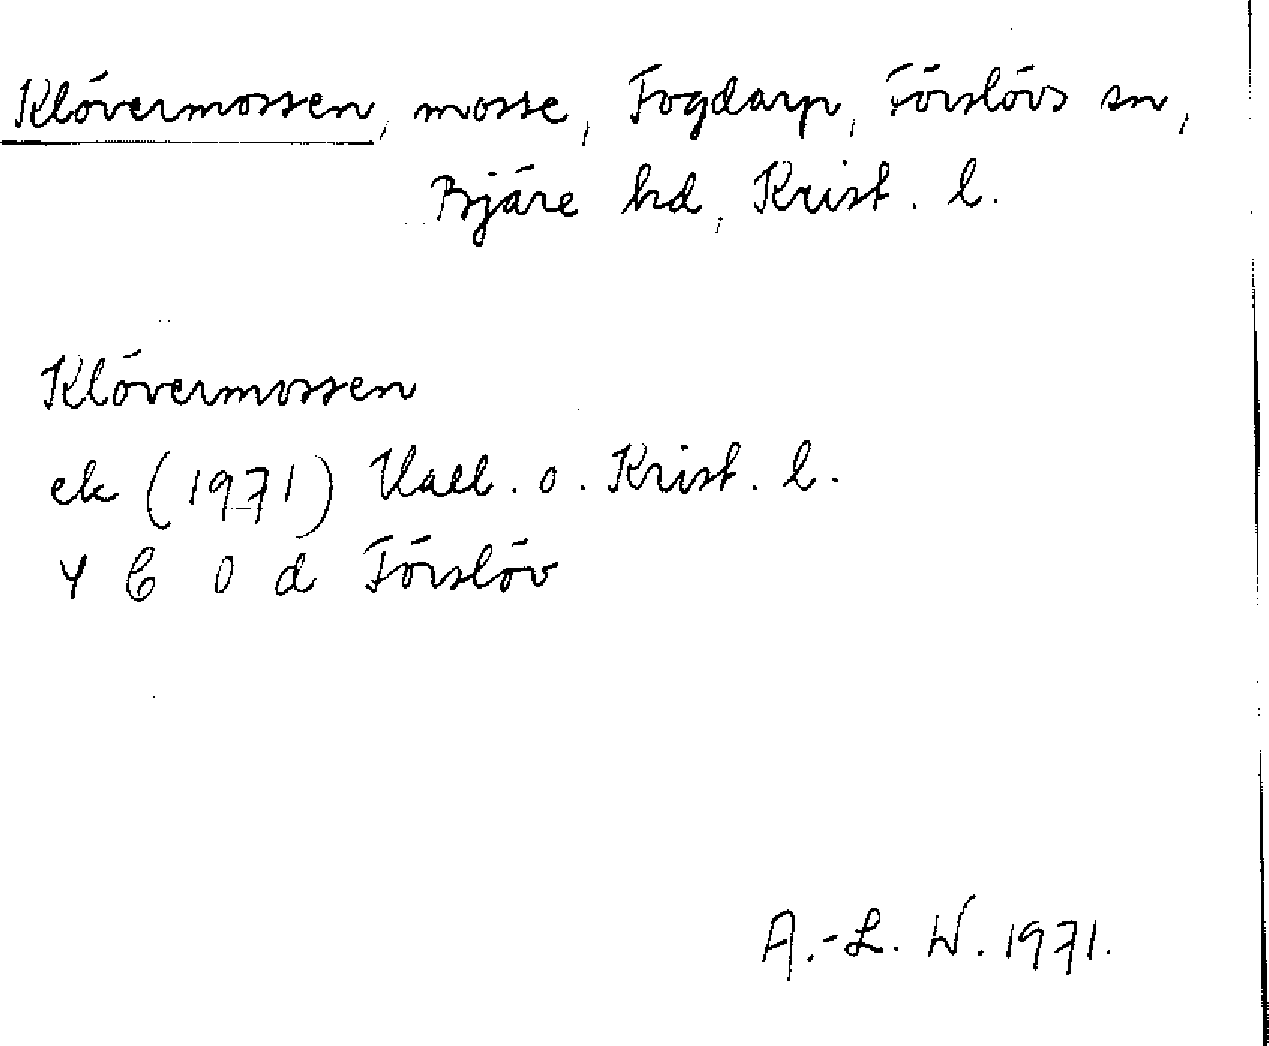 Klövermossen, mosse, Fogdarp, Förslövs sn,
Bjäre hd, Krist. l.
Klövermossen
ek (1971) Hall. o. Krist. l.
4 C 0 d Förslöv
A.-L. W. 1971.